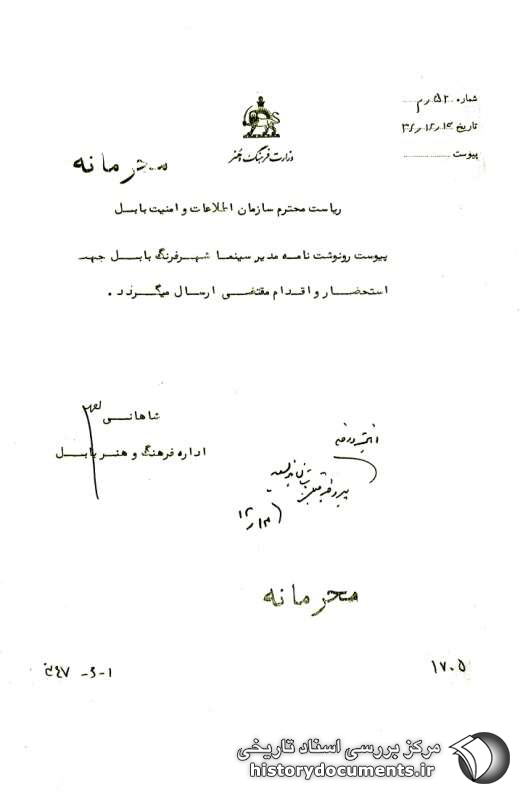 شماره ۵۲ ر م
تاریخ ۳۶/۱۲/۱۳
پیوست
وزارت فرهنگ و هنر
محرمانه
ریاست محترم سازمان اطلاعات و امنیت بابل
پیوست رونوشت نامه مدیر سینما شهرفرنگ بابل جهت
استحضار و اقدام مقتضی ارسال میگردد.
شاهانی
اداره فرهنگ و هنر بابل
۱۲/۱۳
محرمانه
۱۷۰۵
مرکز بررسی اسناد تاریخی
historydocuments.ir